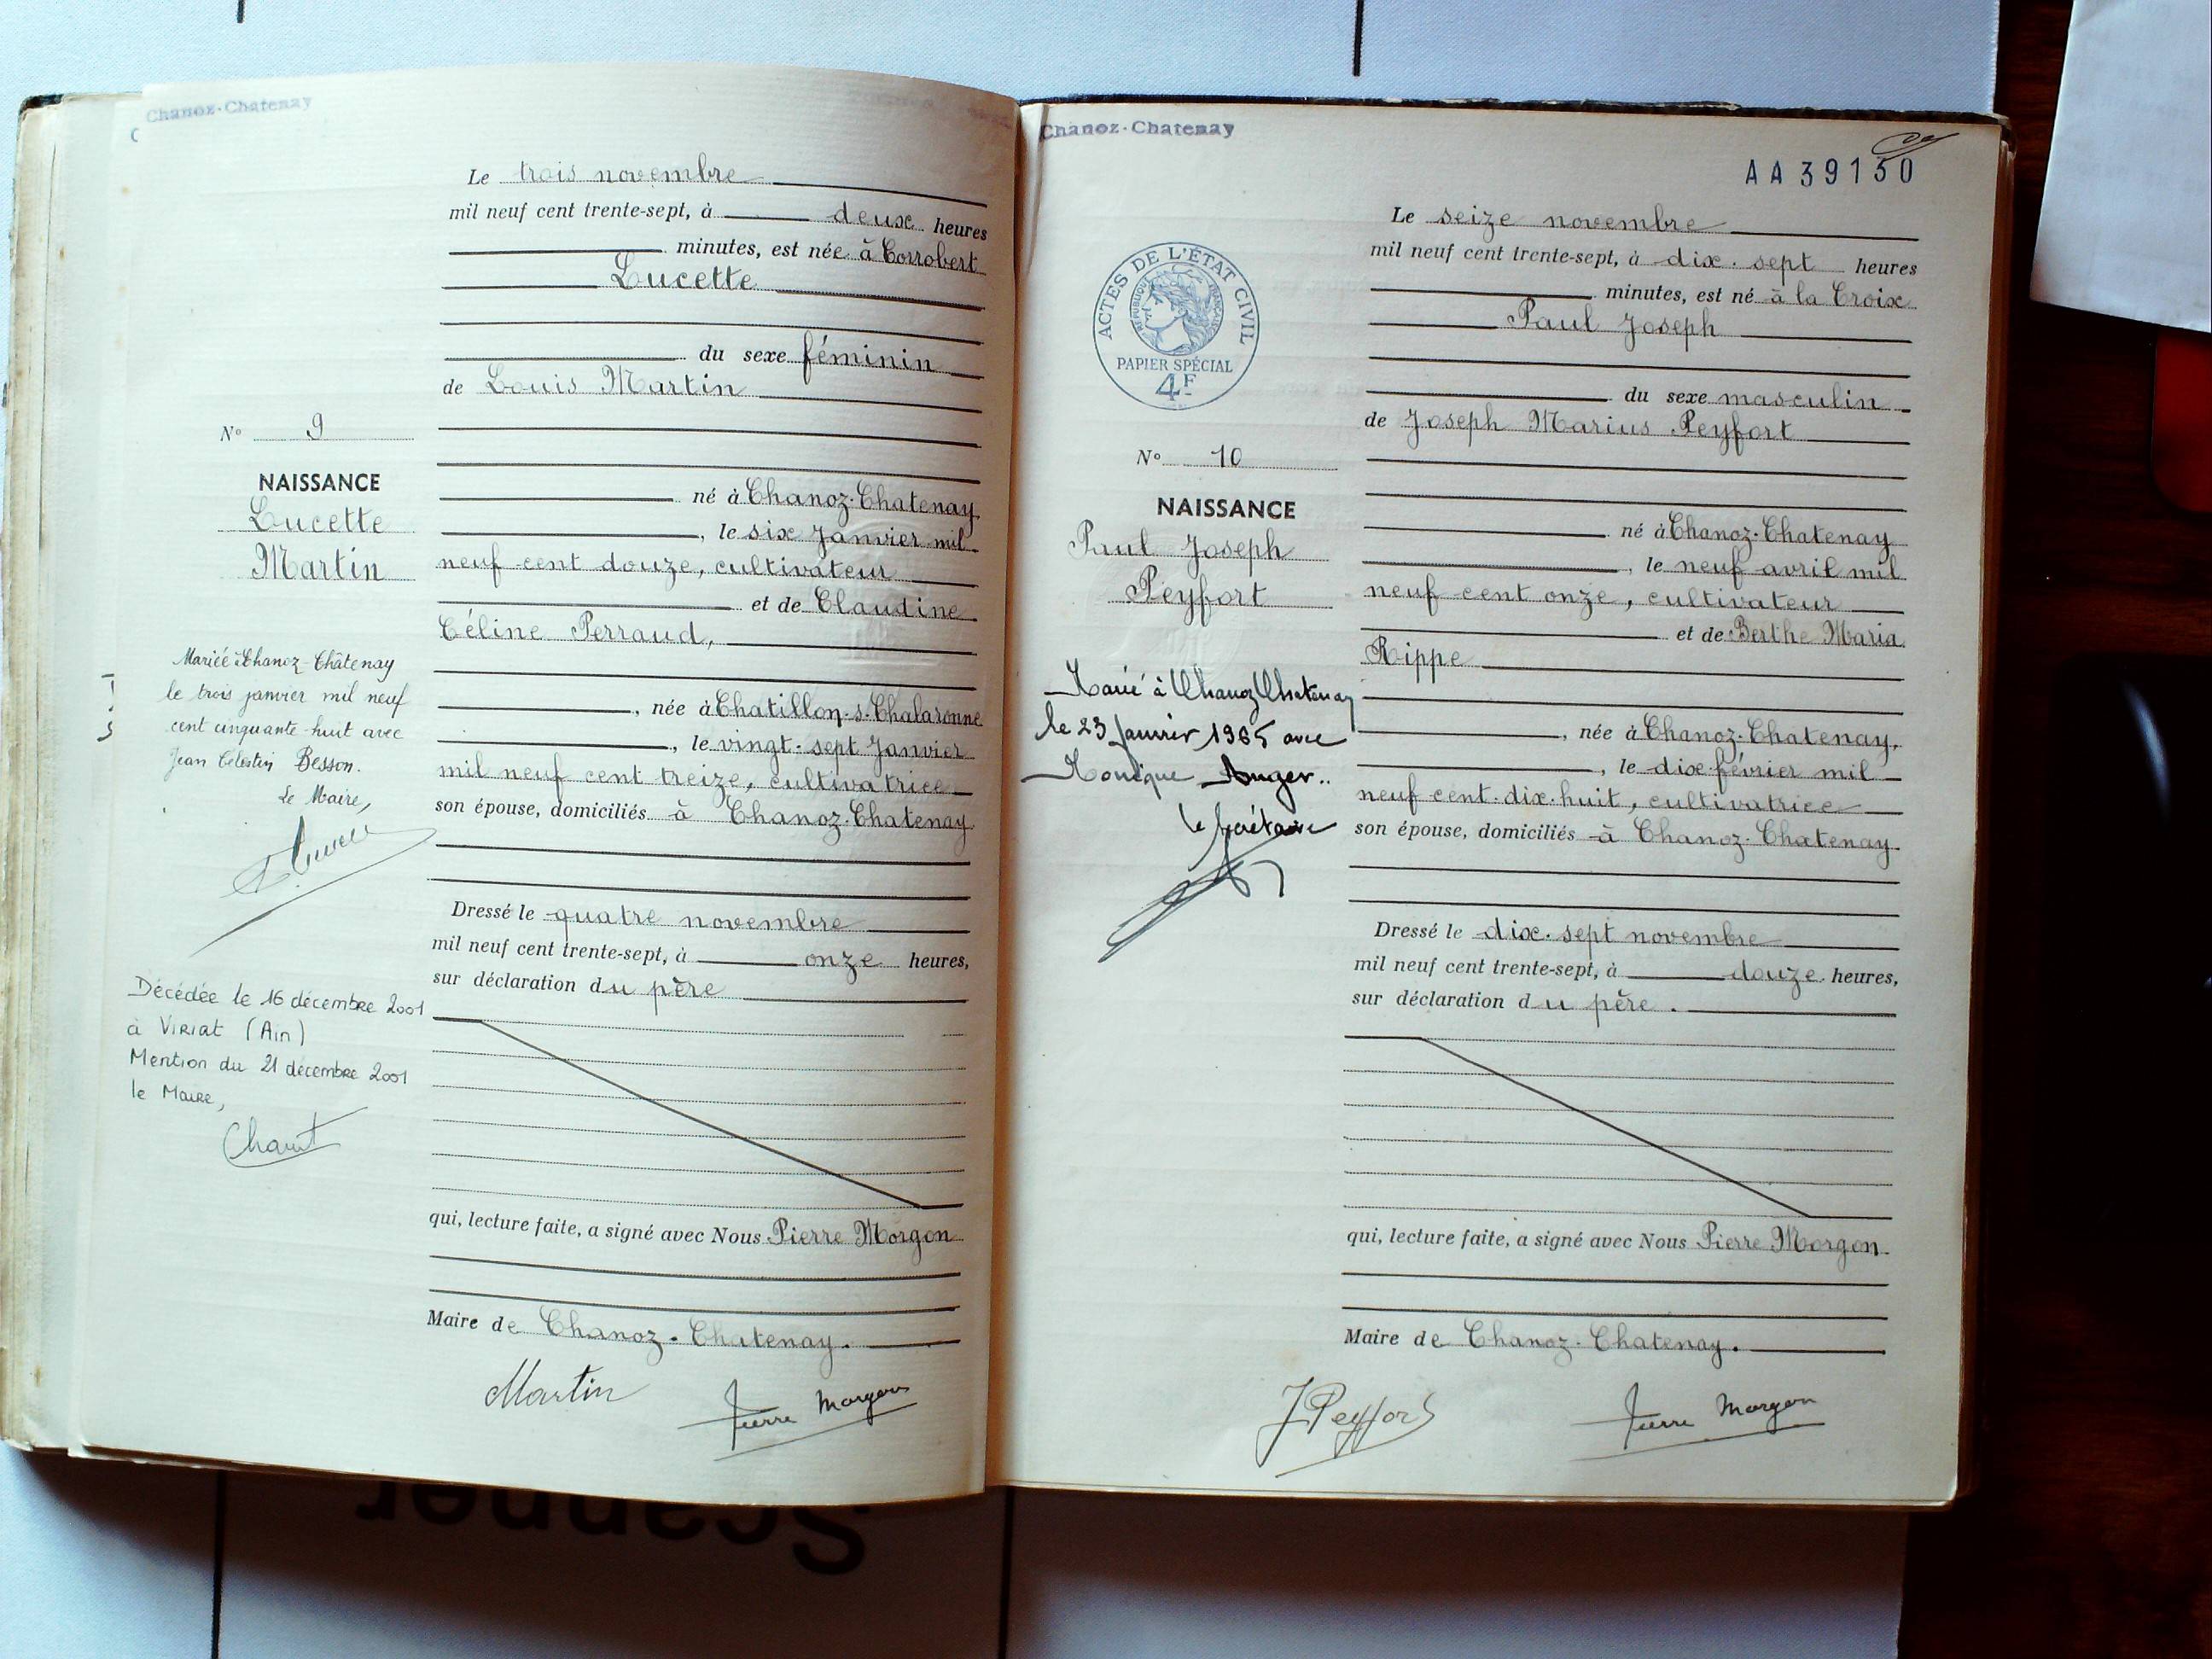 Chanoz-Chatenay
Le trois novembre
mil neuf cent trente-sept, à deux heures
minutes, est née à Corrobert
Lucette
du sexe féminin
de Louis Martin
N° 9
NAISSANCE
Lucette
Martin
né à Chanoz-Chatenay
, le six Janvier mil
neuf cent douze, cultivateur
et de Claudine
Céline Perraud,
, née à Chatillon-s-Chalaronne
, le vingt-sept Janvier
mil neuf cent treize, cultivatrice
son épouse, domiciliés à Chanoz-Chatenay
Mariée à Chanoz-Châtenay
le trois janvier mil neuf
cent cinquante-huit avec
Jean Célestin Besson.
Le Maire,
Dressé le quatre novembre
mil neuf cent trente-sept, à onze heures,
sur déclaration du père
Décédée le 16 décembre 2001
à VIRIAT (Ain)
Mention du 21 décembre 2001
le Maire,
qui, lecture faite, a signé avec Nous Pierre Morgon
Maire de Chanoz-Chatenay.
Martin
Pierre Morgon
Chanoz-Chatenay
AA39130
Le seize novembre
mil neuf cent trente-sept, à dix-sept heures
minutes, est né à la Croix
Paul Joseph
ACTES DE L'ÉTAT CIVIL
RÉPUBLIQUE FRANÇAISE
PAPIER SPÉCIAL
4F
du sexe masculin
de Joseph Marius Peyfort
N° 10
NAISSANCE
Paul Joseph
Peyfort
né à Chanoz-Chatenay
, le neuf avril mil
neuf cent onze, cultivateur
et de Berthe Maria
Rippe
, née à Chanoz-Chatenay,
, le dix février mil
neuf cent-dix-huit, cultivatrice
son épouse, domiciliés à Chanoz-Chatenay.
Marié à Chanoz Chatenay
le 23 janvier 1965 avec
Monique Auger..
le Secrétaire
Dressé le dix-sept novembre
mil neuf cent trente-sept, à douze heures,
sur déclaration du père.
qui, lecture faite, a signé avec Nous Pierre Morgon.
Maire de Chanoz-Chatenay.
J Peyfort
Pierre Morgon
Scanner